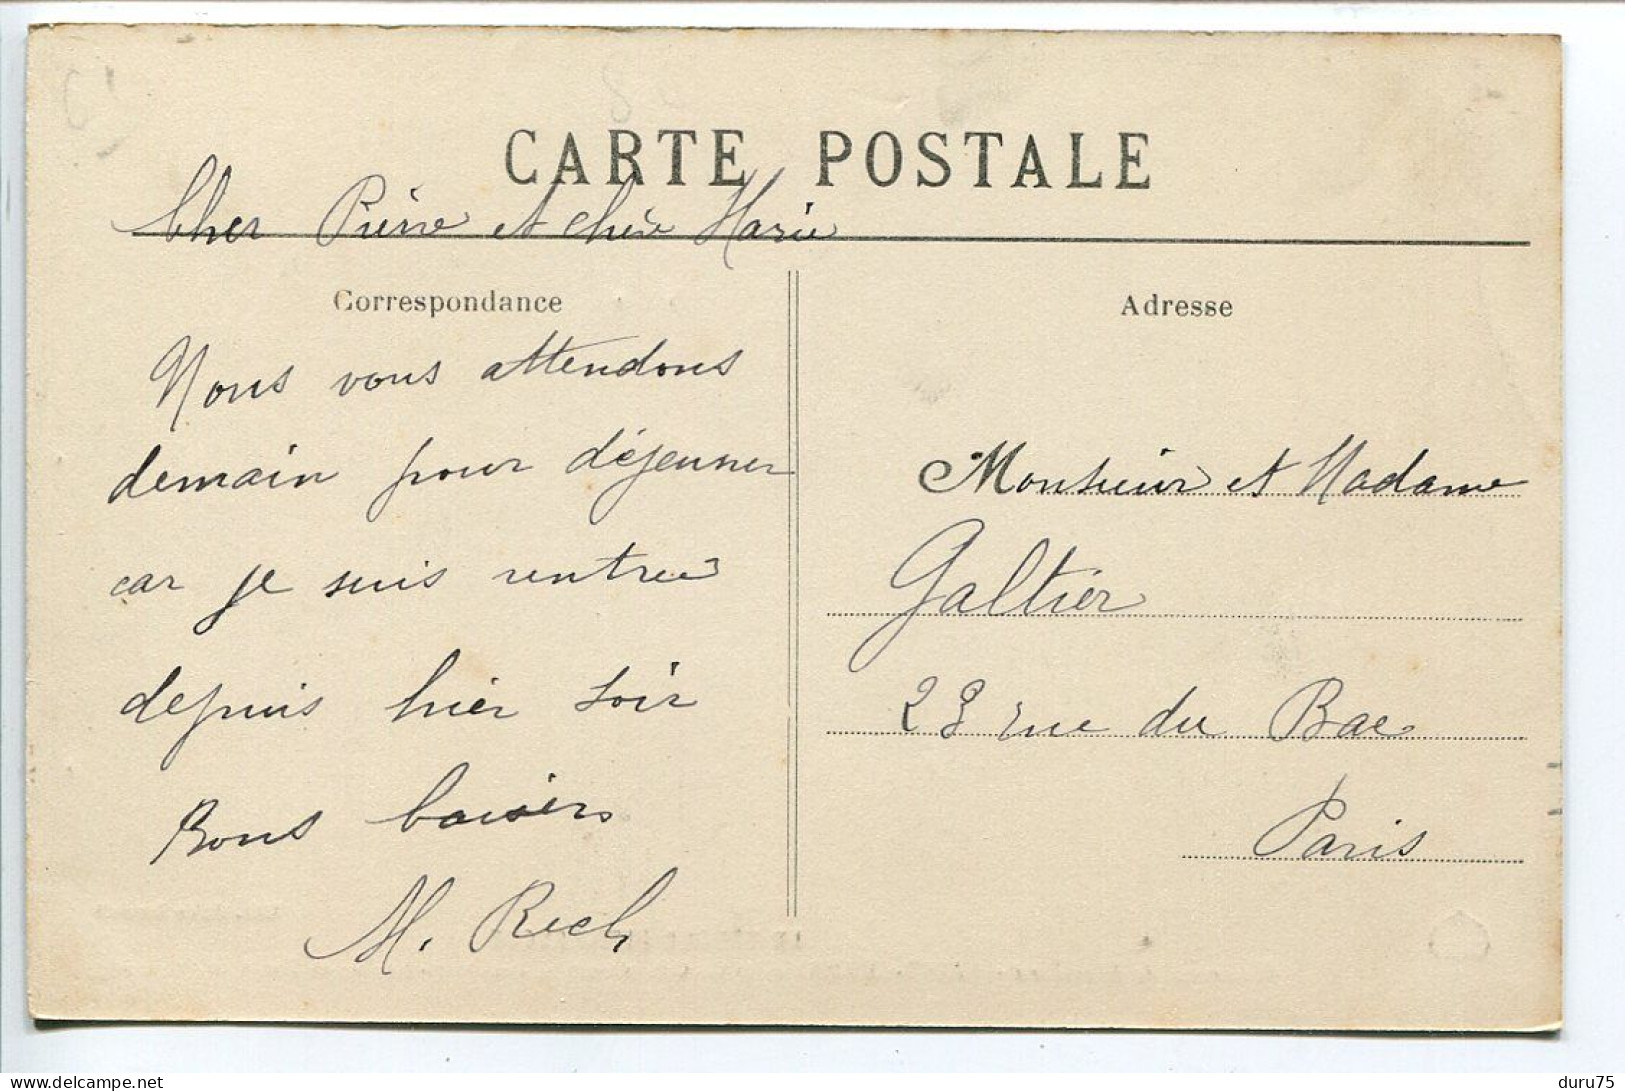 CARTE POSTALE
Cher Pierre et chère Marie
Correspondance
Nous vous attendons
demain pour déjeuner
car je suis rentrée
depuis hier soir
Bons baisers
M. Rech
Adresse
Monsieur et Madame
Galtier
23 rue du Bac
Paris
delcampe.net
duru75